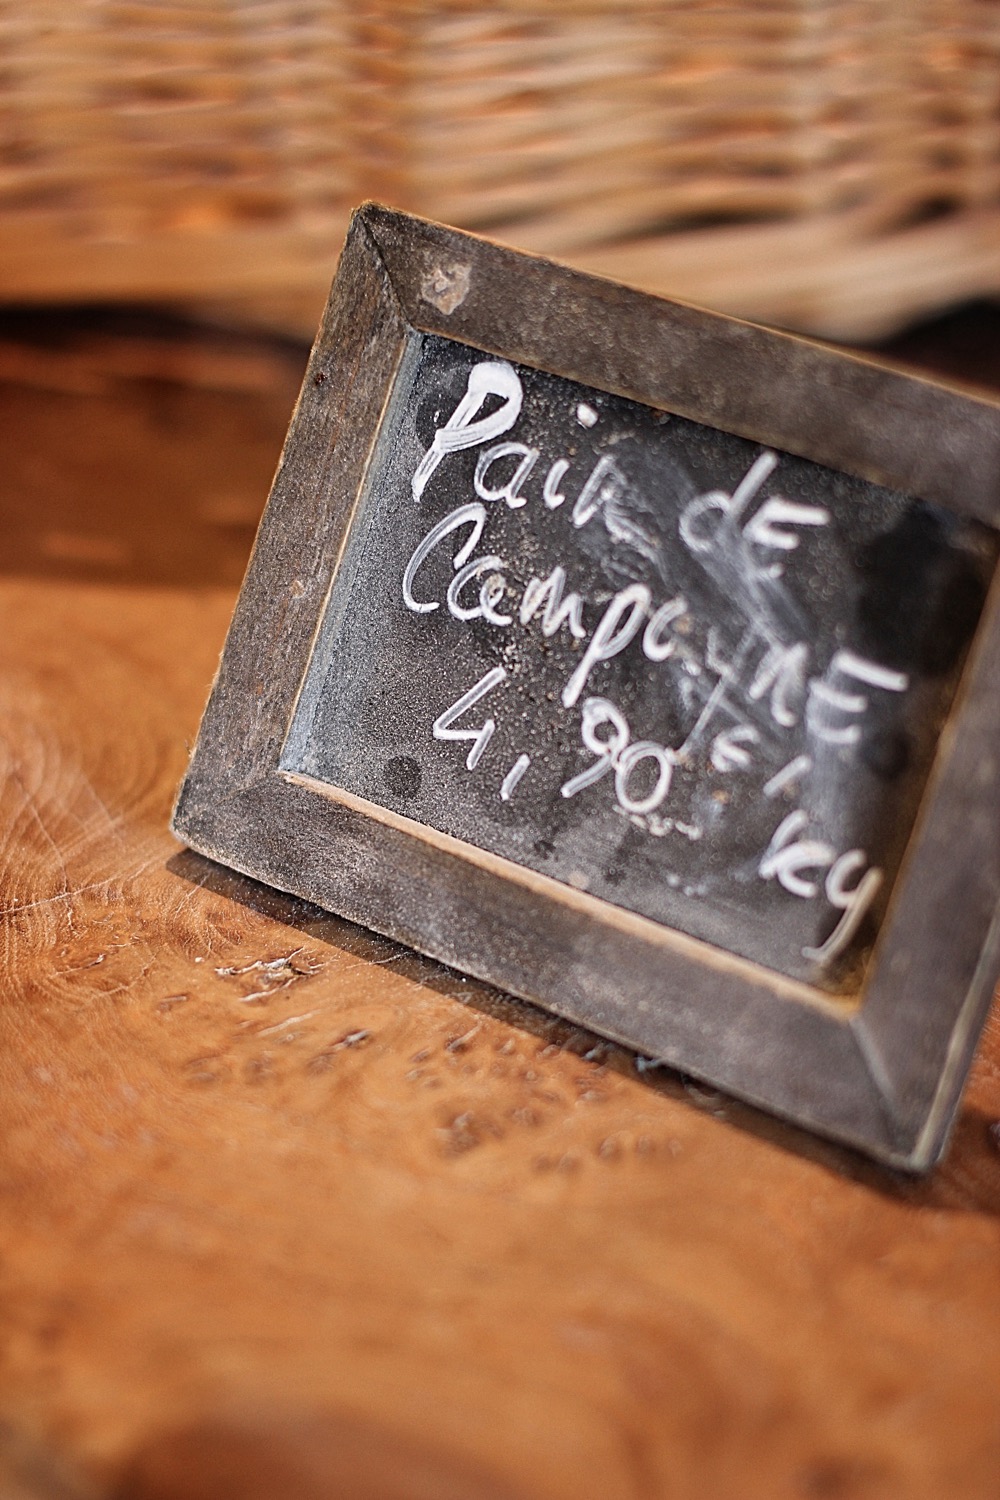 Pain dE
CampagNE
4,90 € / kg